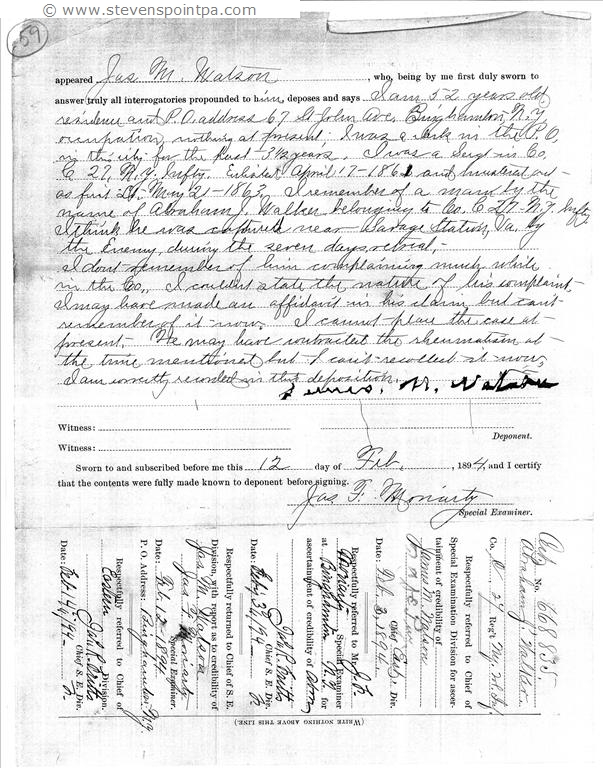 © www.stevenspointpa.com
59
appeared Jas. M. Watson, who, being by me first duly sworn to
answer truly all interrogatories propounded to him, deposes and says I am 52 years old,
residence and P.O. address 67 St John Ave, Binghamton, N.Y,
occupation, nothing at present; I was a clerk in the P.O,
in this city for the past 3½ years. I was a Sergt in Co,
C 27, N.Y. Infty. Enlisted April 17-1861 and mustered out
as first Lt. May 21-1863. I remember of a man by the
name of Abraham J Walker belonging to Co. C 27-N.Y. Infty
I think he was captured near Savage Station, Va. by
the Enemy, during the seven days retreat,-
I don't remember of him complaining much while
in the Co., I couldn't state the nature of his complaint-
I may have made an affidavit in his claim but can't
remember of it now. I cannot place the case at-
present,- He may have contracted the rheumatism at-
the time mentioned but I can't recollect it now,
I am correctly recorded in this deposition.
James. M. Watson
Witness:
Deponent.
Witness:
Sworn to and subscribed before me this 12 day of Feb, 1894, and I certify
that the contents were fully made known to deponent before signing.
Jas F. Moriarty
Special Examiner.
No. 668895.
Abraham J Walker.
Co. C 27 Reg't Ny. Vol. Inf.
Respectfully referred to Chief of
Special Examination Division for ascer-
tainment of credibility of
James M. Watson
Chief Div.
Date: 3, 1894.
Respectfully referred to Mr. J. F.
Moriarty Special Examiner
at Binghamton N.Y., for
ascertainment of credibility of
Chief S. E. Div.
Date: Feby 3, 94
Respectfully returned to Chief of S. E.
Division, with report as to credibility of
Jas M. Watson
Jas F Moriarty
Special Examiner.
Date: Feb. 12-1894.
P. O. Address: Binghamton N.Y
Respectfully referred to Chief of
Eastern Division.
Chief S. E. Div.
Date: Feb 14, 94
(WRITE NOTHING ABOVE THIS LINE.)